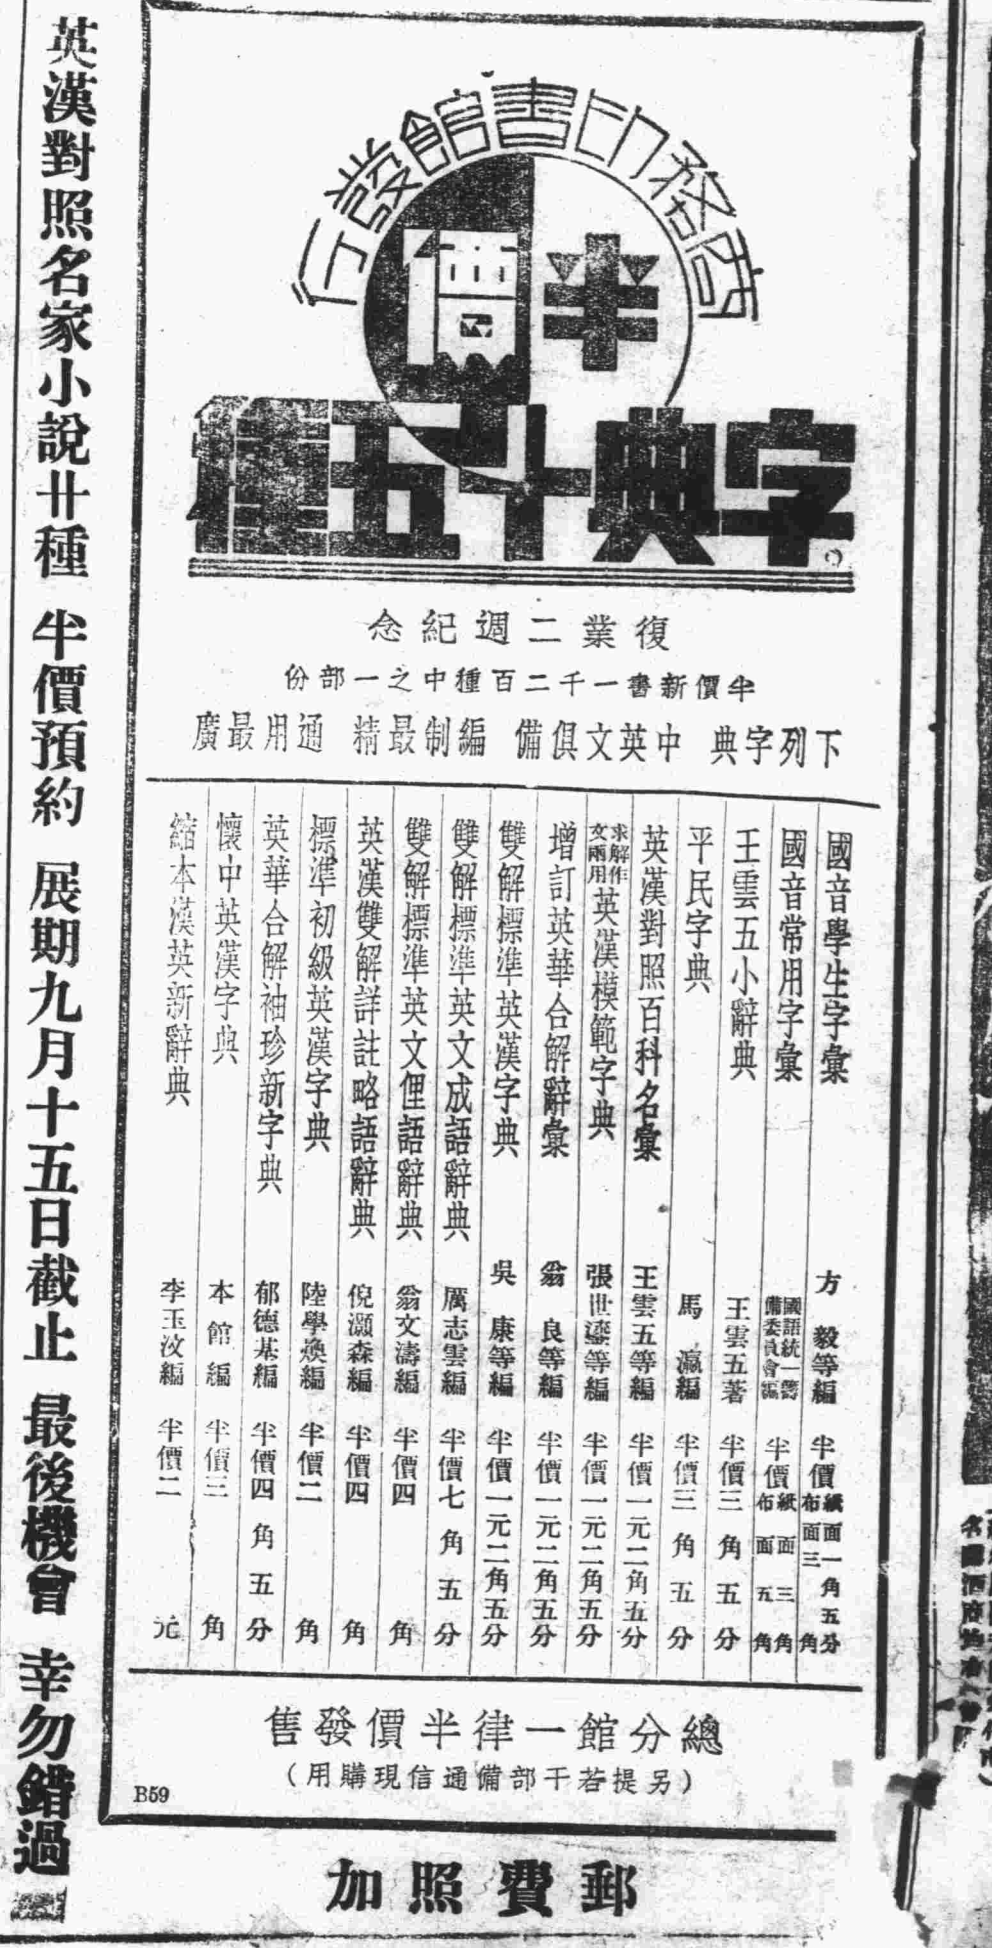 商務印書館發行
半價
字典十五種
復業二週紀念
半價新書一千二百種中之一部份
下列字典 中英文俱備 編制最精 通用最廣
國音學生字彙 方毅等編 半價 紙面一角五分 布面三角
國音常用字彙 國語統一籌備委員會編 半價 紙面三角 布面五角
王雲五小辭典 王雲五著 半價三角五分
平民字典 馬瀛編 半價三角五分
英漢對照百科名彙 王雲五等編 半價一元二角五分
求解作文兩用 英漢模範字典 張世鎏等編 半價一元二角五分
增訂英華合解辭彙 翁良等編 半價一元二角五分
雙解標準英漢字典 吳康等編 半價一元二角五分
雙解標準英文成語辭典 厲志雲編 半價七角五分
雙解標準英文俚語辭典 翁文濤編 半價四角
英漢雙解詳註略語辭典 倪灝森編 半價四角
標準初級英漢字典 陸學煥編 半價二角
英華合解袖珍新字典 郁德基編 半價四角五分
懷中英漢字典 本館編 半價三角
縮本漢英新辭典 李玉汶編 半價二元
總分館一律半價發售
(另提若干部備通信現購用)
B59
郵費照加
英漢對照名家小說廿種 半價預約 展期九月十五日截止 最後機會 幸勿錯過